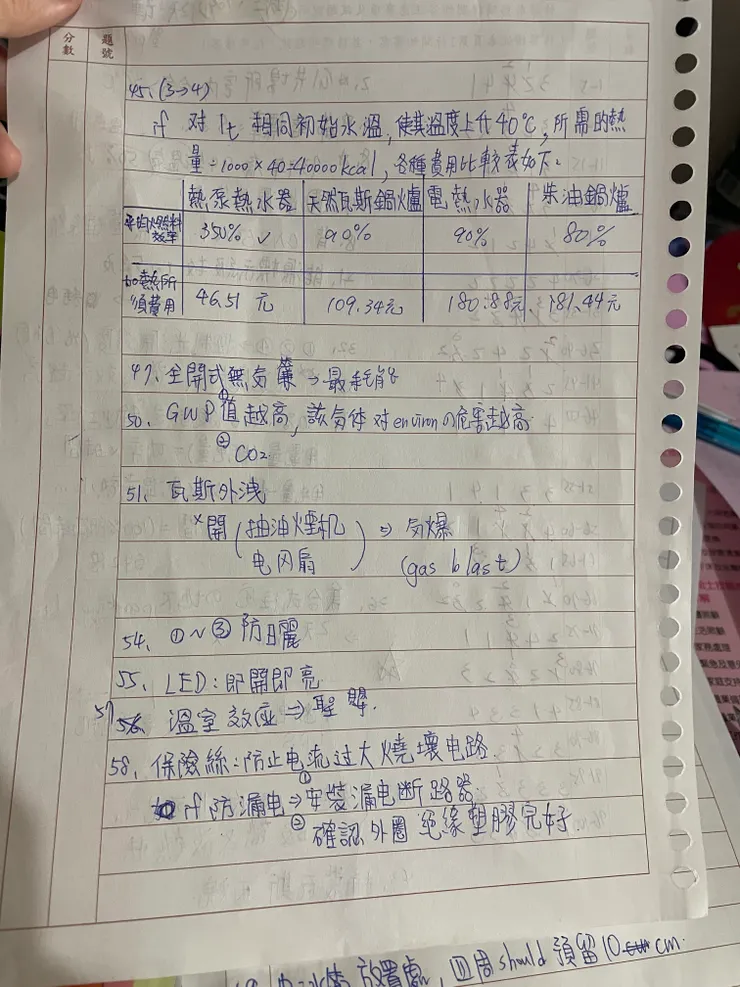 分數 題號
45、(3→4)
if 对 1t 相同初始水溫,使其溫度上升40℃,所需的熱
量=1000×40=40000kcal,各種費用比較表如下.
熱泵熱水器 天然瓦斯鍋爐 電熱水器 柴油鍋爐
平均燃料效率 350% ✓ 90% 90% 80%
加熱所須費用 46.51 元 109.34元 180.88元 181.44元
47、全開式無气簾⇒最耗能
50、①GWP值越高,該气体对environの危害越高
②CO2
51、瓦斯外洩
×開(抽油煙机 电风扇)⇒气爆
(gas blast)
54、①~③防日曬
55、LED:即開即亮
57、溫室效应⇒聖嬰.
58、保險絲:防止电流过大燒壞电路
if防漏电⇒①安裝漏电断路器
②確認外圈絕緣塑膠完好.
放置處,四周should 預留10cm.